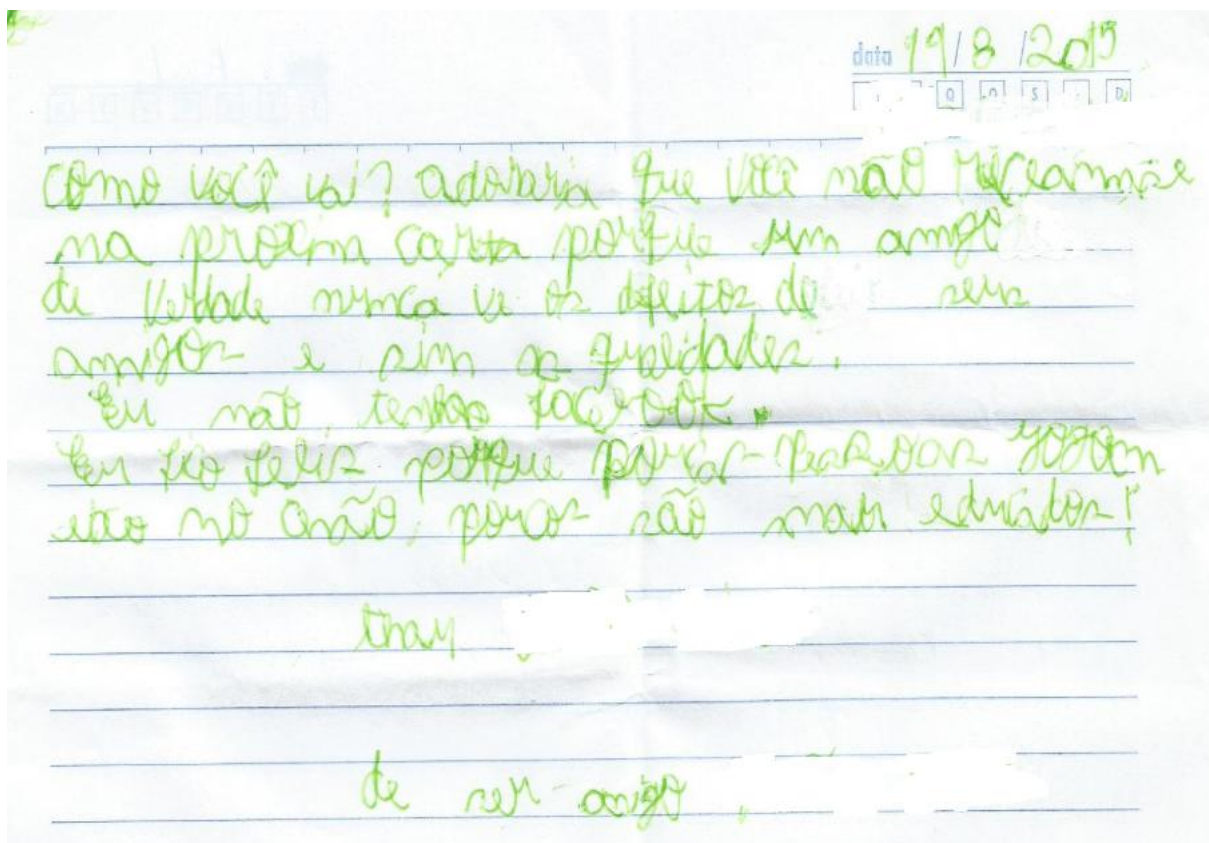 data 19/8/2015
Q Q S D
como você vai? adoraria que você não
na proxim carta porque um amigo
de verdade nunca ve os defeitos de seus
amigos e sim as qualidades.
Eu não tenho facebook.
Eu fico feliz porque poucas pessoas jogam
no chão, poucos são mau educados!
thay
de seu amigo